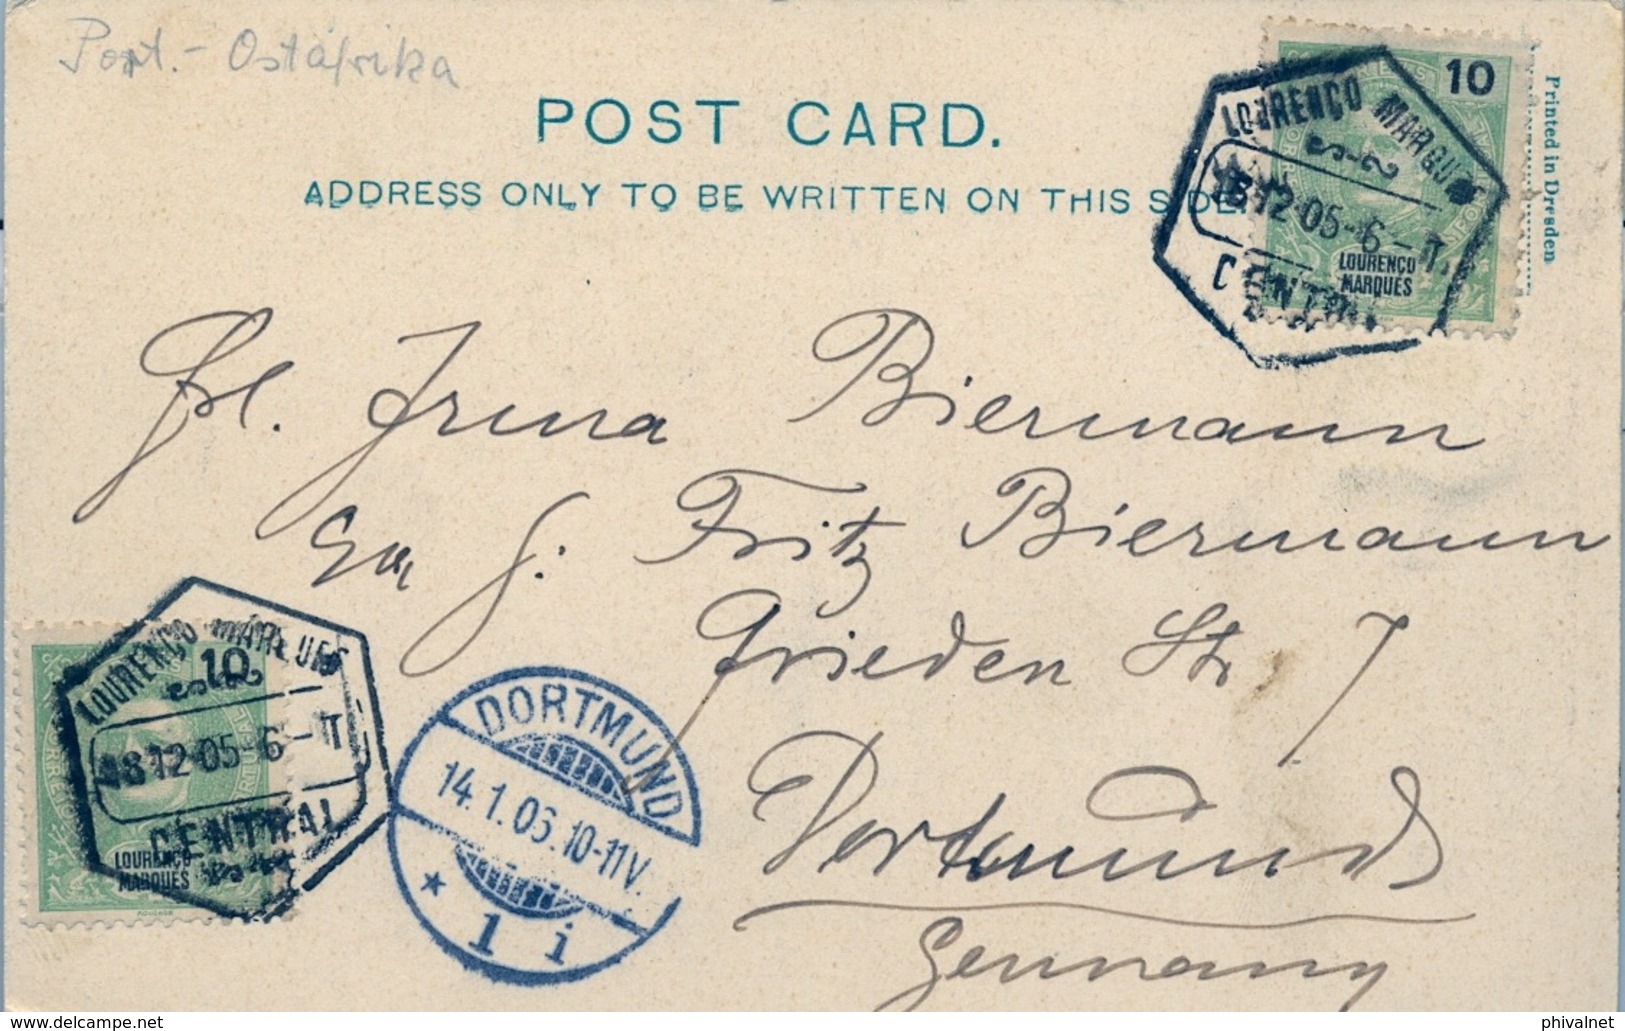 Port.- Ostafrika
POST CARD.
ADDRESS ONLY TO BE WRITTEN ON THIS SIDE.
Printed in Dresden
10
LOURENÇO MARQUES
LOURENÇO MARQUES
18 12·05-6-T
CENTRAL
Frl. Irma Biermann
Fritz Biermann
Grieden Str 7
Dortmund
Germany
10
LOURENÇO MARQUES
LOURENÇO MARQUES
18 12·05-6-T
CENTRAL
DORTMUND
14.1.06.10-11V.
* 1 i
delcampe.net
phivalnet